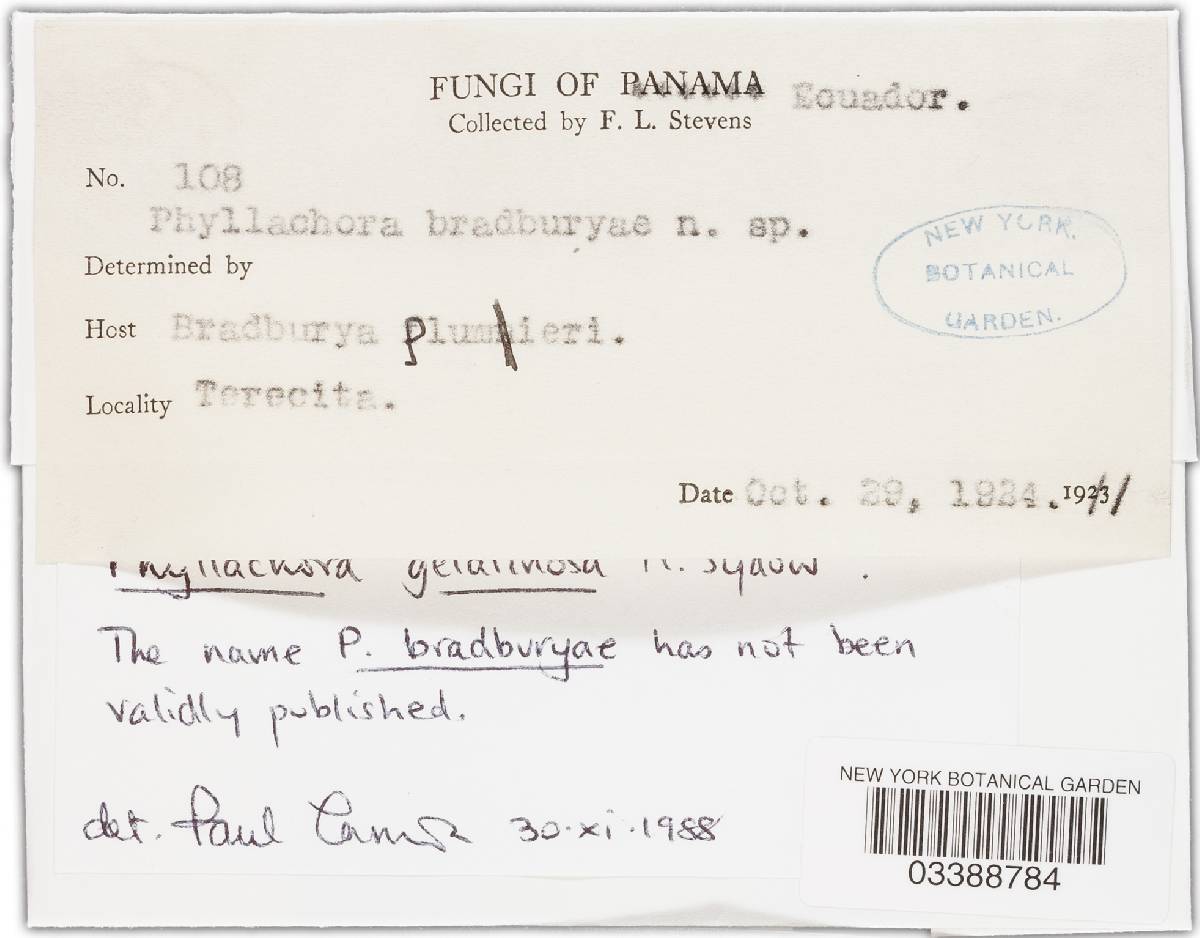 FUNGI OF PANAMA Ecuador.
Collected by F. L. Stevens
No. 108
Phyllachora bradburyae n. sp.
NEW YORK
BOTANICAL
GARDEN.
Determined by
Host Bradburya plumieri.
Locality Terecita.
Date Oct. 29, 1924. 1923
Phyllachora gelatinosa H. Sydow.
The name P. bradburyae has not been
validly published.
det. Paul Cannon 30.xi.1988
NEW YORK BOTANICAL GARDEN
03388784